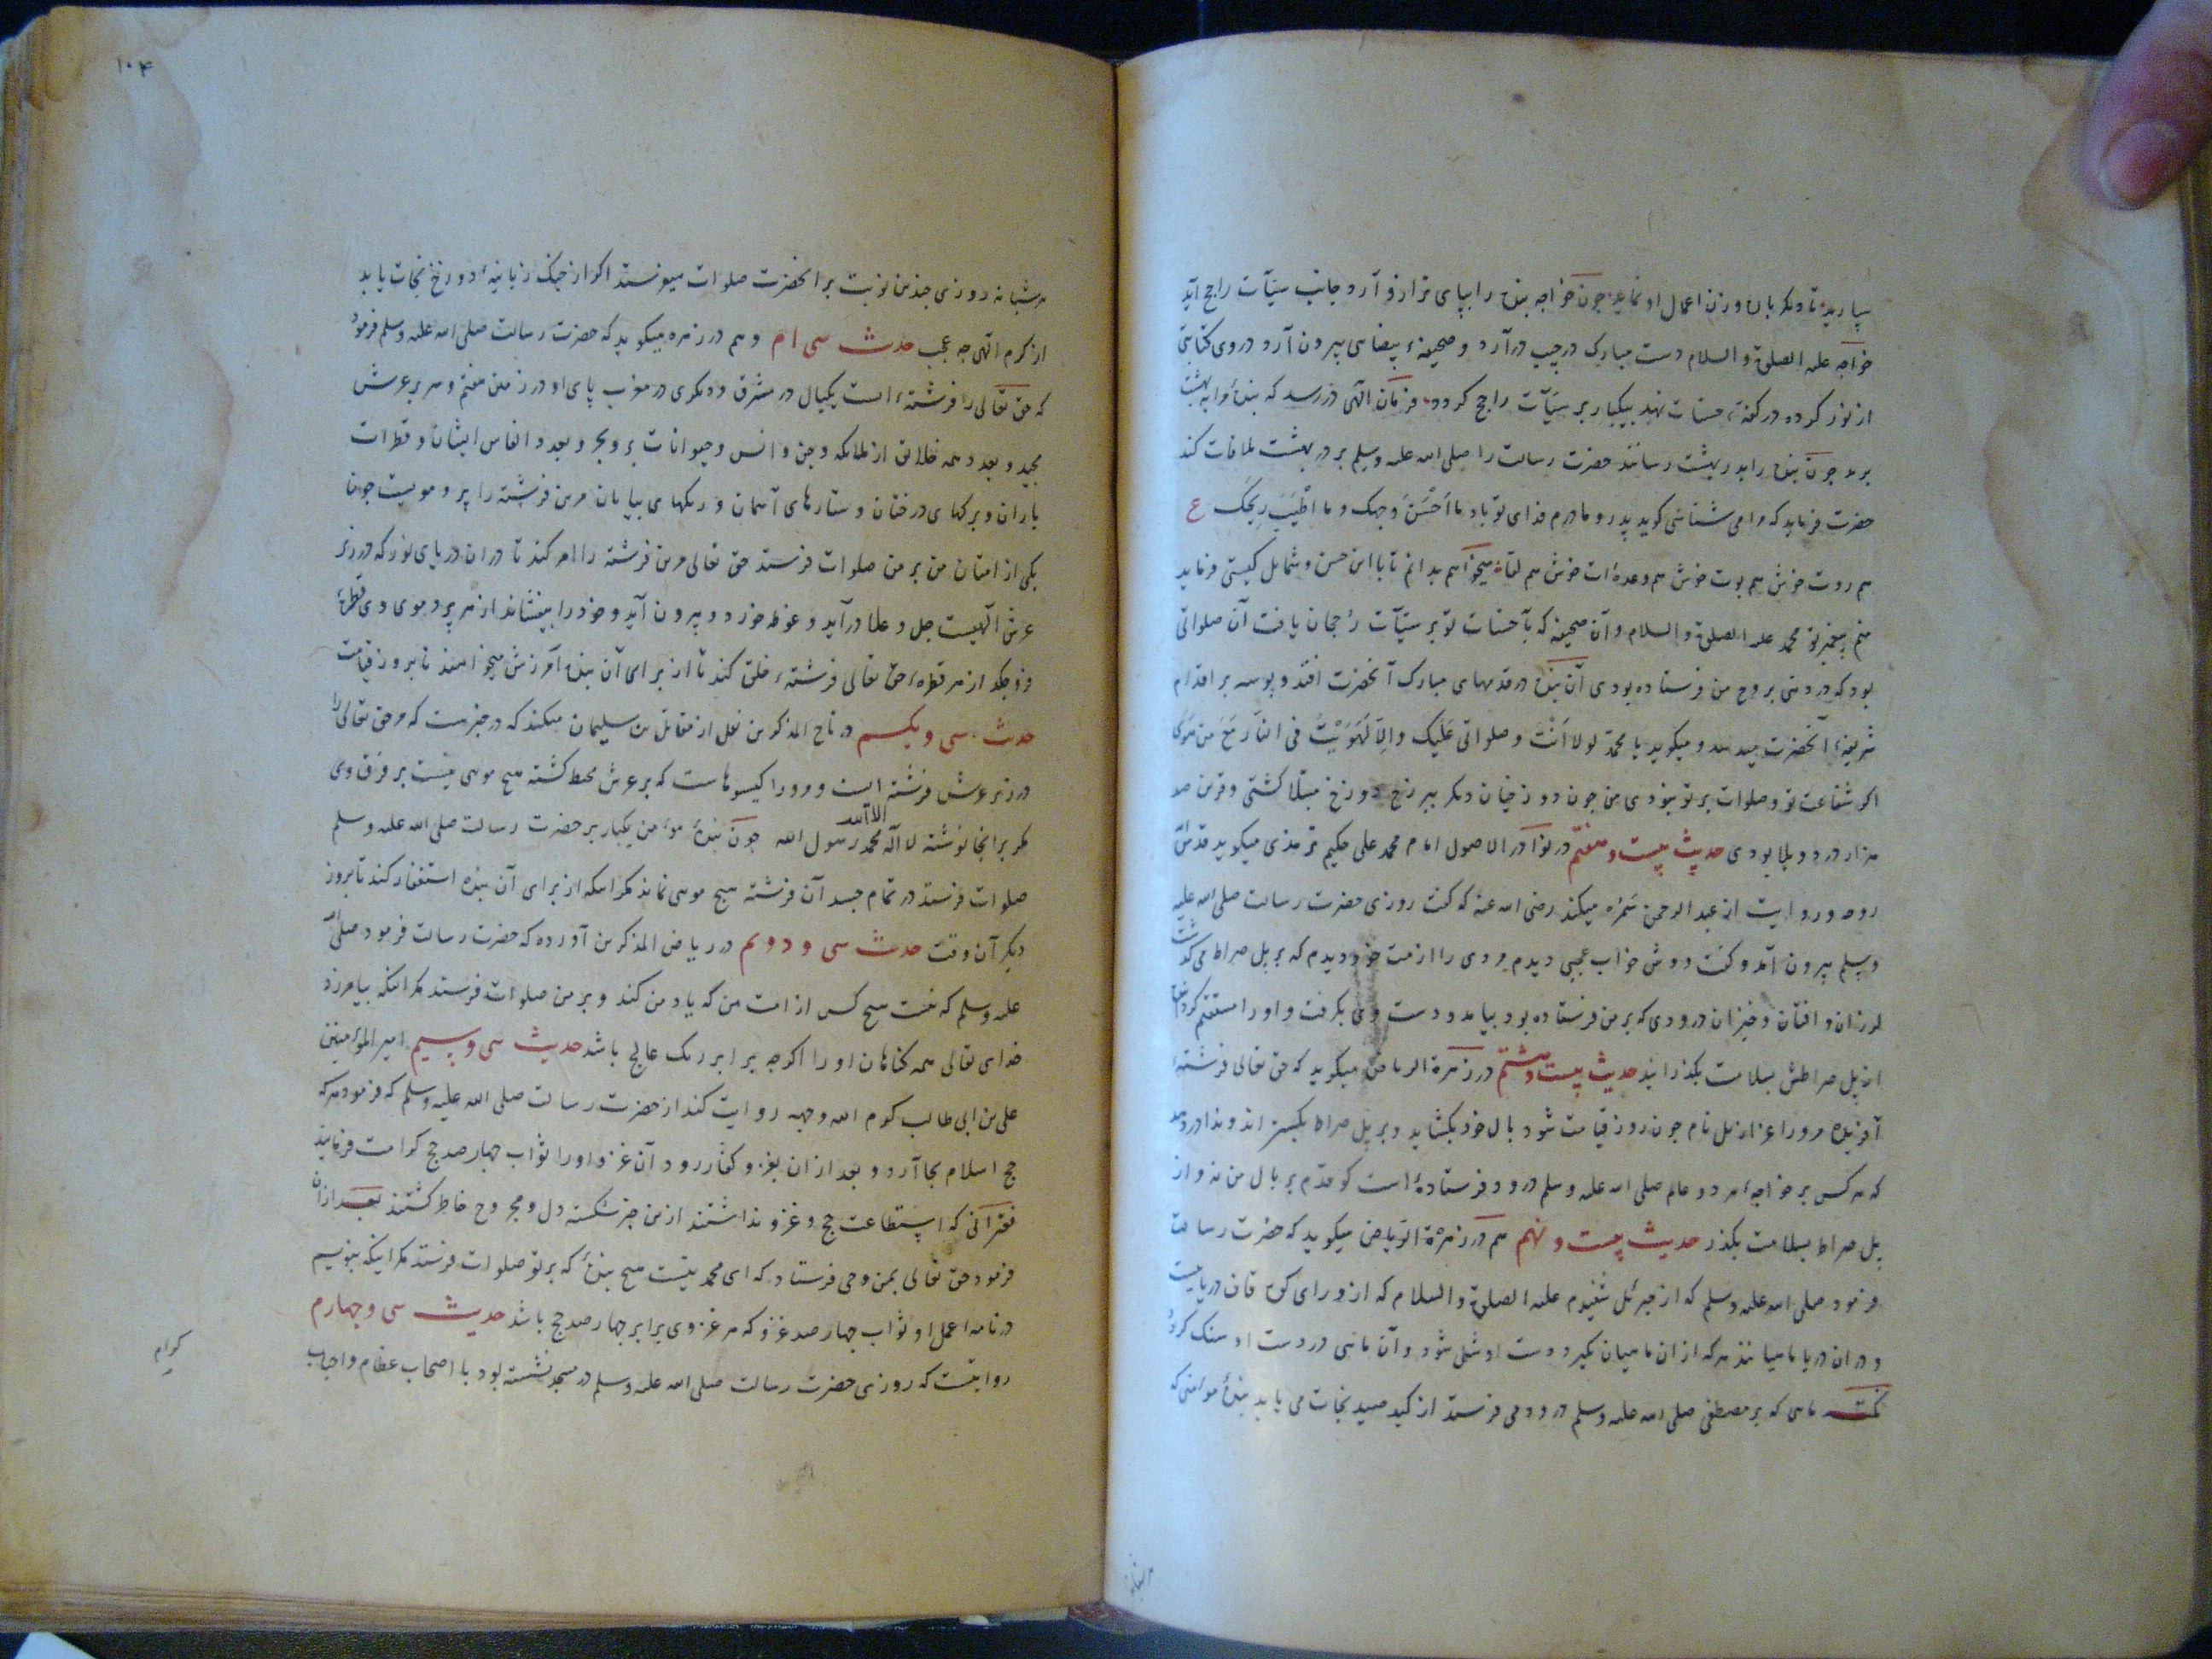 بپارید تا دیکر بار وزن اعمال او نماید چون خواجه بنده را بپای ترازو آرد جانب سیّآت راجح آید
خواجه علیه الصلوة والسلام دست مبارک در جیب در آرد و صحیفهٔ بیضا سی بیرون آرد در وی کتابتی
از نور کرده در کفهٔ حسنات نهد بیکبار بر سیّآت راجح کردد فرمان الهی در رسد که بنده را به بهشت
برند چون بنده را بدر بهشت رسانند حضرت رسالت را صلی الله علیه وسلم بر در بهشت ملاقات کند
حضرت فرماید که مرا می شناسی کوید پدر و مادرم فدای تو باد ما اَحْسَنَ وَجهک و ما اَطْیَبَ رِیحَک ع
هم روت خوش هم بوت خوش هم وعده‌ات خوش هم لقا میخواهم بدانم تا با این حسن و شمایل کیستی فرماید
منم پیغمبر تو محمد علیه الصلوة والسلام و آن صحیفه که بآن حسنات تو بر سیّآت رُجحان یافت آن صلواتی
بود که در دنیی بر روح من فرستاده بودی آن بنده در قدمهای مبارک آنحضرت افتد و بوسه بر اقدام
شریفهٔ آنحضرت میدهد و میکوید یا محمدُ لولا اَنْتَ و صلواتی عَلَیک و اِلّا لَهَوَیْتُ فی النّارِ مَعَ مَن هَوٰی
اکر شفاعت تو و صلوات بر تو نبودی من چون دوزخیان دیکر ببرزخ دوزخ مبتلا کشتی و قرین صد
هزار درد و بلا بودی حدیث بیست و هفتم در نوادر الاصول امام محمد علی حکیم ترمذی میکوید قدس الله
روحه و روایت از عبد الرحمن سَمُره میکند رضی الله عنه که کفت روزی حضرت رسالت صلی الله علیه
وسلم بیرون آمد و کفت دوش خواب عجبی دیدم مردی را از امت خود دیدم که بر پل صراط می کذشت
لرزان و افتان و خیزان درودی که بر من فرستاده بود بیامد و دست وی بکرفت و او را مستقیم کردانید
از پل صراطش بسلامت بکذرانید حدیث بیست و هشتم در زهرة الریاض میکوید که حق تعالی فرشتهٔ
آفریده مر ورا عزازیل نام چون روز قیامت شود بال خود بکشاید و بر پل صراط بکستراند و ندا در دهد
که هر کس بر خواجهٔ هر دو عالم صلی الله علیه وسلم درود فرستادهٔ است کو قدم بر بال من نه و از
پل صراط بسلامت بکذر حدیث بیست و نهم هم در زهرة الریاض میکوید که حضرت رسالت
فرمود صلی الله علیه وسلم که از جبرئیل شنیدم علیه الصلوة والسلام که از ورای کوه قاف دریاییست
و در آن دریا ماهیانند هر که از ان ماهیان بکیرد دست او شل شود و آن ماهی در دست او سنک کردد
نکته ماهی که بر مصطفی صلی الله علیه وسلم درود می فرستد از کید صید نجات می یابد بندهٔ مؤمنی که
هر شبانه
۱۰۴
هر شبانه روزی چندین نوبت بر آنحضرت صلوات میفرستد اکر از جنک زبانیهٔ دوزخ نجات یابد
از کرم الهی چه عجب حدیث سی ام و هم در زهره میکوید که حضرت رسالت صلی الله علیه وسلم فرمود
که حق تعالی را فرشتهٔ است یکبال در مشرق و دیکری در مغرب پای او در زمین هفتم و سر بر عرش
مجید و بعدد همه خلایق از ملایکه و جن و انس و حیوانات بر و بحر و بعدد انفاس ایشان و قطرات
باران و برکهای درختان و ستارهای آسمان و ریکهای بیابان مر این فرشته را پر و مویست چون
یکی از امتان من بر من صلوات فرستد حق تعالی مر این فرشته را امر کند تا در ان دریای نور که در زیر
عرش الهیست جل و علا در آید و غوطه خورد و بیرون آید و خود را بیفشاند از هر پر و موی وی قطرهٔ
فرو چکد از هر قطرهٔ حق تعالی فرشتهٔ خلق کند تا از برای آن بنده آمرزش میخواهند تا بروز قیامت
حدیث سی و یکم در تاج المذکرین نقل از مقاتل بن سلیمان میکند که در خبرست که مر حق تعالی را
در زیر عرش فرشتهٔ است و مر ورا کیسوهاست که بر عرش محیط کشته هیچ مویی نیست بر فرق وی
مکر بر انجا نوشته لا اله الا الله محمد رسول الله چون بندهٔ مؤمن یکبار بر حضرت رسالت صلی الله علیه وسلم
صلوات فرستد در تمام جسد آن فرشته هیچ مویی نماند مکر اینکه از برای آن بنده استغفار کند تا بروز
دیکر آن وقت حدیث سی و دوم در ریاض المذکرین آورده که حضرت رسالت فرمود صلی الله
علیه وسلم که نیست هیچ کس از امت من که یاد من کند و بر من صلوات فرستد مکر اینکه بیامرزد
خدای تعالی همه کناهان او را اکرچه برابر ریک عالج باشد حدیث سی و سیم امیر المؤمنین
علی بن ابی طالب کرم الله وجهه روایت کند از حضرت رسالت صلی الله علیه وسلم که فرمود هر که
حج اسلام بجا آرد و بعد از ان بغزو کفار رود آن غزو او را ثواب چهار صد حج کرامت فرمایند
فقرائی که استطاعت حج و غزو نداشتند ازین خبر شکسته دل و مجروح خاطر کشتند بعد از ان
فرمود حق تعالی بمن وحی فرستاد که ای محمد نیست هیچ بندهٔ که بر تو صلوات فرستد مکر اینکه بنویسم
در نامه اعمال او ثواب چهار صد غزو که هر غزوی برابر چهار صد حج باشد حدیث سی و چهارم
روایتست که روزی حضرت رسالت صلی الله علیه وسلم در مسجد نشسته بود با اصحاب عظام و احباب
کرام